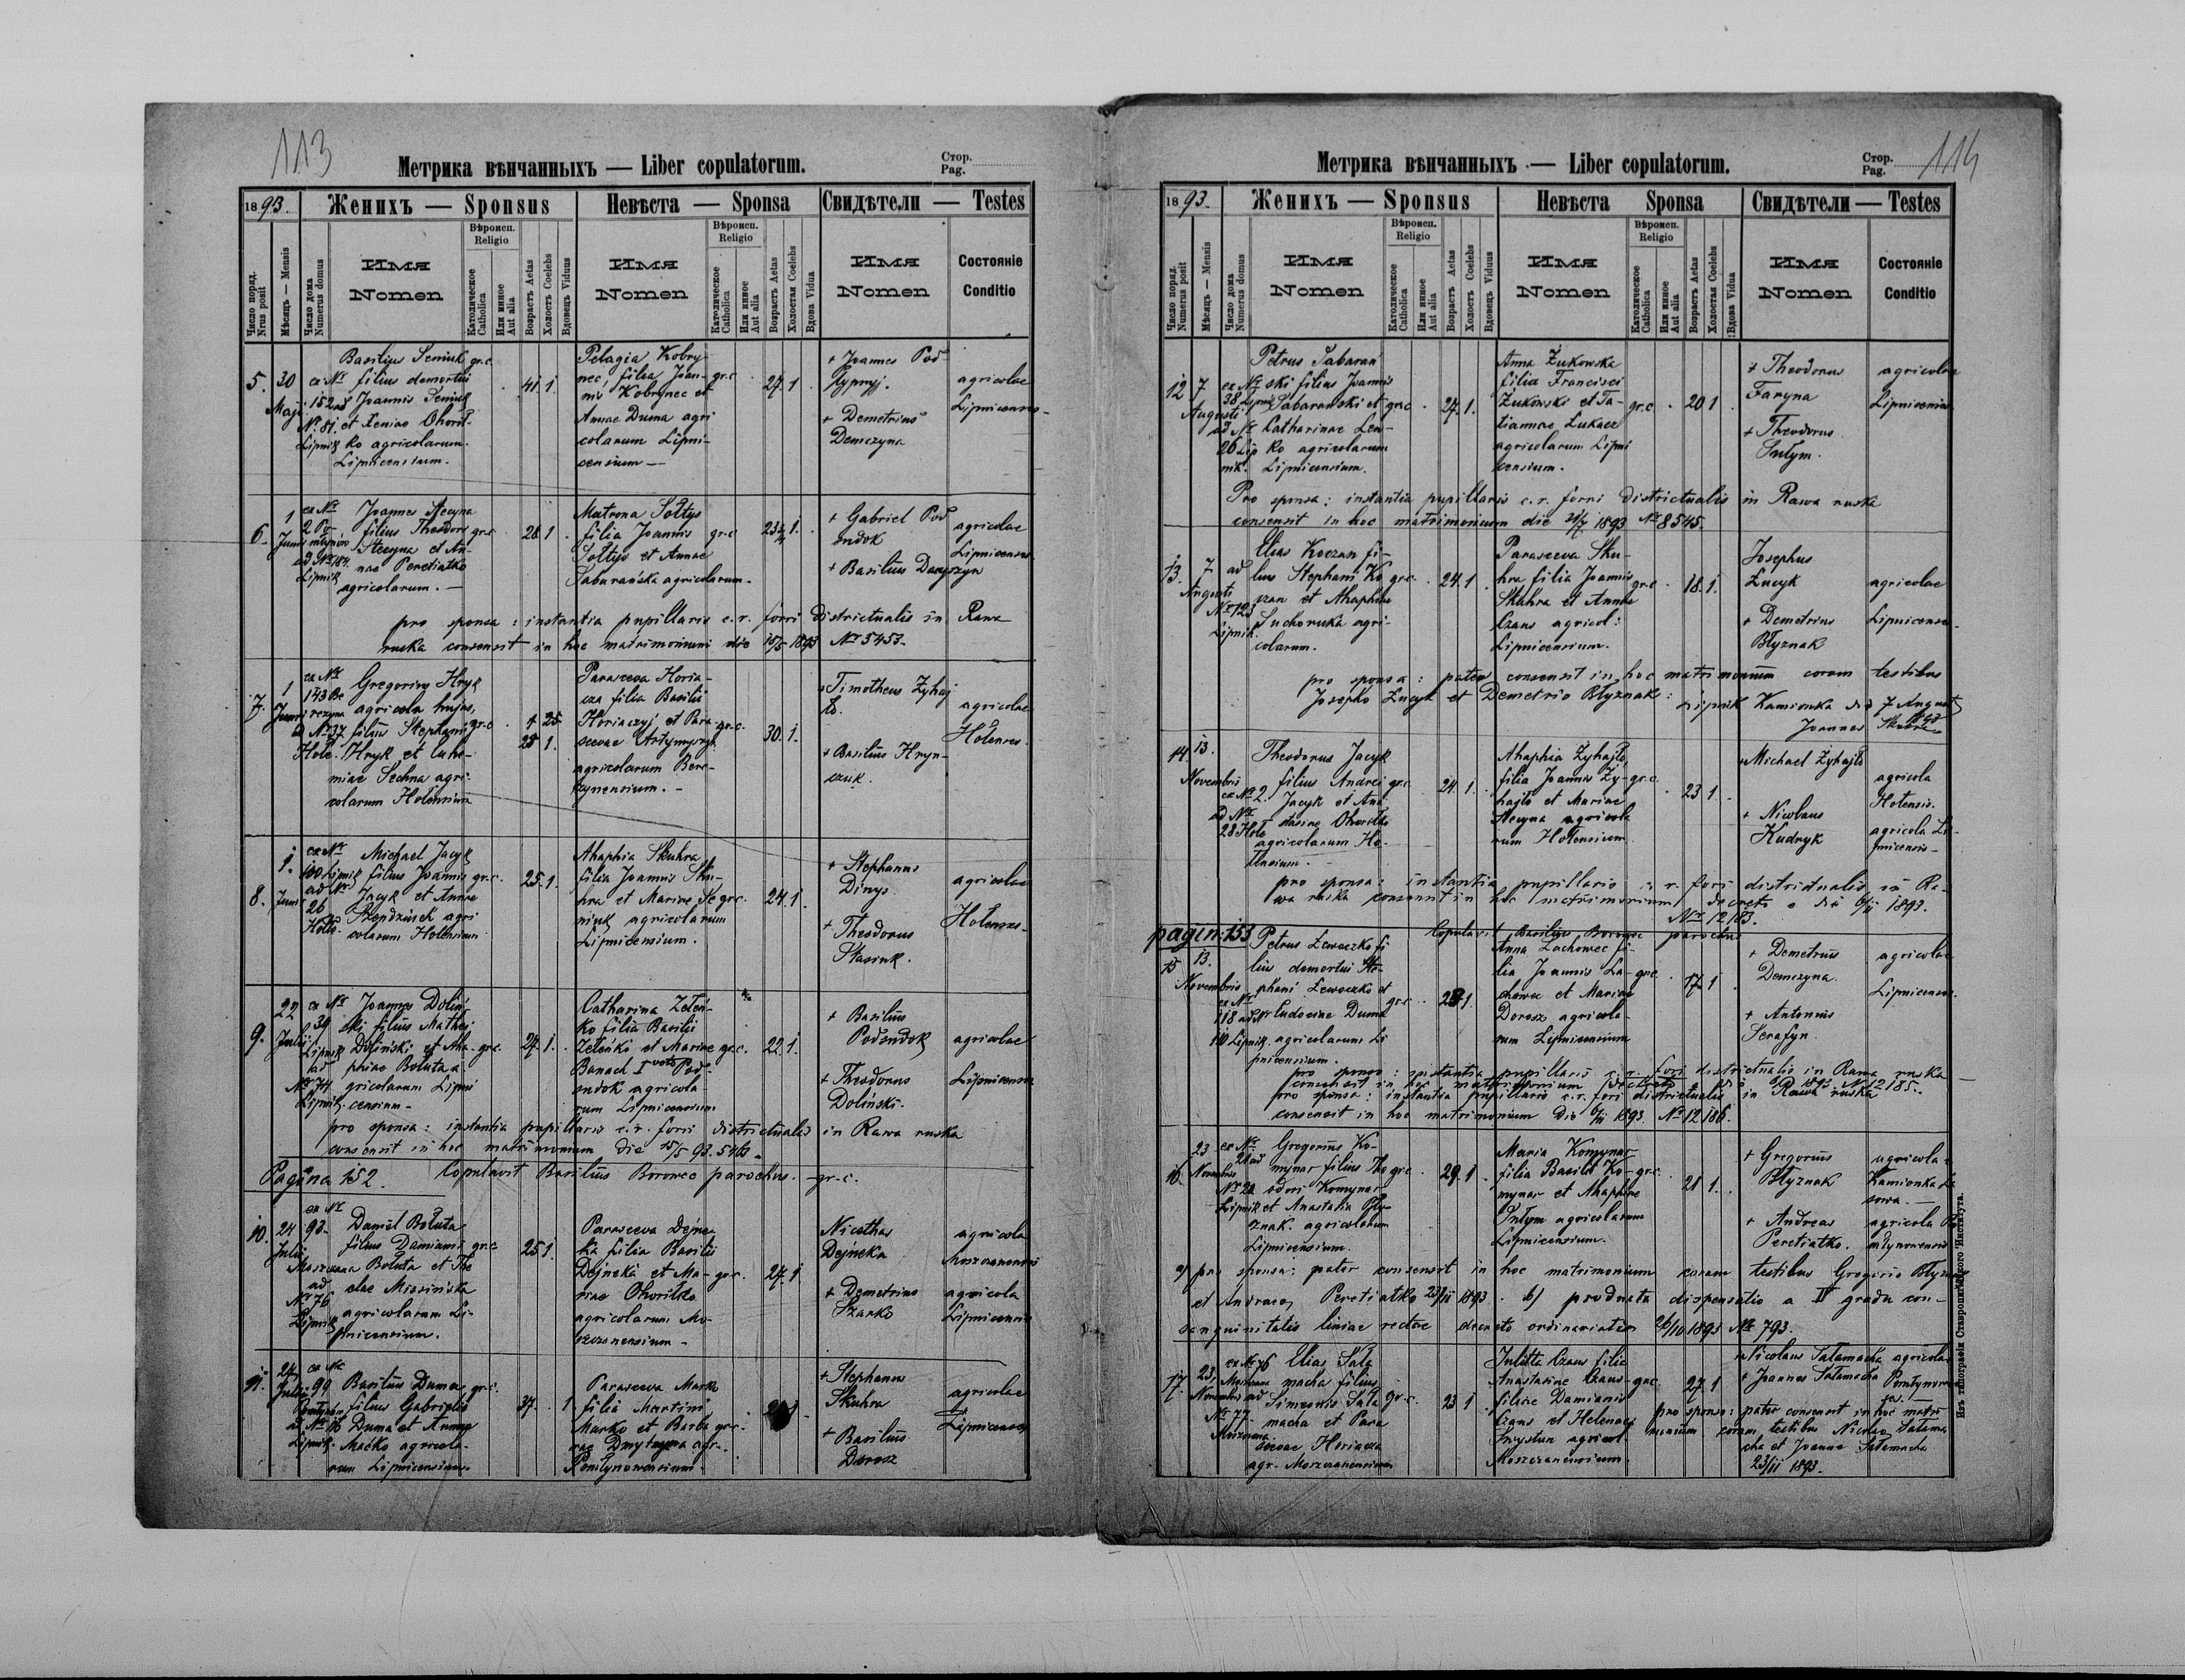 113
Метрика вѣнчанныхъ — Liber copulatorum.
Стор.
Pag.
1893.
Женихъ — Sponsus
Невѣста — Sponsa
Свидѣтели — Testes
Число поряд.
Nrus posit
Мѣсяць — Mensis
Число дома
Numerus domus
Имя
Nomen
Вѣроисп.
Religio
Католическое
Catholica
Или инное
Aut alia
Возрастъ Aetas
Холостъ Coelebs
Вдовецъ Viduus
Имя
Nomen
Вѣроисп.
Religio
Католическое
Catholica
Или инное
Aut alia
Возрастъ Aetas
Холостая Coelebs
Вдова Vidua
Имя
Nomen
Состоянie
Conditio
5. 30 Maji
ex Nr 152 ad Nr 81. Lipnik
Basilius Seniuk
filius demortui
Joannis Seniuk
et Xeniae Chorit-
ko agricolarum
Lipnicensium.
gr.c. 41 1
Pelagia Kobry-
nec, filia Joan-
nis Kobrynec et
Annae Duma agri
colarum Lipni-
censium —
gr.c 27. 1
+ Joannes Pod-
+ Demetrius
Demczyna
agricolae
Lipnicenses
6. 1 Junii
ex Nr 2 ad Nr 184. Lipnik
Joannes Stecyna
filius Theodori
Stecyna et An-
nae Peretiatko
agricolarum. —
gr.c 28 1
Matrona Sołtys
filia Joannis
Sołtys et Annae
Sabarańska agricolarum.
gr.c 1.
+ Gabriel Pod
sudok
+ Basilius Daryszyn
agricolae
Lipnicenses
pro sponsa: instantia pupillaris c.r. fori districtualis in Rawa
ruska consensit in hoc matrimonium die 15/5 1893 Nr 5453.
7. 1 Junii
ex Nr 143 ad Nr 37 Hole.
Gregorius Hryk
agricola hujas,
filius Stephani
Hryk et Euhe-
miae Sechna agri-
colarum Holensium
gr.c 25 1.
Parasceva Horia-
cza filia Basilii
Horiaczyj et Para-
scevae Artymyszyn
agricolarum Bere-
zynensium. —
gr.c. 30. 1.
+ Timotheus Zyhaj
ło.
+ Basilius Hryn-
czuk.
agricolae
Holenses
8. 1. Junii
ex Nr 100 Lipnik ad Nr 26 Hole.
Michael Jacyk
filius Joannis
Jacyk et Annae
agri
colarum Holensium
gr.c. 25. 1.
Ahaphia Skuhra
filia Joannis Sku-
hra et Mariae Se
niuk agricolarum
Lipnicensium.
gr.c. 24. 1
+ Stephanus
Dinys
+ Theodorus
Stasiuk.
agricolae
Holenses.
9. 22 Julii
ex Nr 39 Lipnik ad Nr 74 Lipnik.
Joannes Doliń-
ski filius Mathei
Doliński et Aha-
phiae Boluta a-
gricolarum Lipni
censium —
gr.c. 24. 1.
Catharina Zełeń-
ko filia Basilii
Zełeńko et Mariae
Banach I voto Pod-
sudok agricola-
rum Lipnicensium
gr.c. 22. 1.
+ Basilius
Podsudok
+ Theodorus
Doliński.
agricolae
Lipnicenses
pro sponsa: instantia pupillaris c.r. fori districtualis in Rawa ruska
consensit in hoc matrimonium die 15/5 93.
Pagina 152. Copulavit Basilius Borowec parochus. gr.c.
10. 24 Julii
ex Nr 93. Moszczana ad Nr 76 Lipnik
Daniel Boluta
filius Damiani
Boluta et The
clae
agricolarum Li-
pnicensium.
gr.c 25 1.
Parasceva Dejne
ka filia Basilii
Dejneka et Ma-
riae Choritko
agricolarum Mo-
szczanensium —
gr.c. 27. 1
Nicethas
Dejneka
+ Demetrius
Szarko
agricola
Moszczanensis
agricola
Lipnicensis
11. 24 Julii
ex Nr 99 ad Nr 16 Lipnik.
Basilius Duma
filius Gabrielis
Duma et Annae
Maćko agricola-
rum Lipnicensium.
gr.c. 37. 1
Parasceva Marko
filia Martini
Marko et Barba
rae Dmytryna agr.
gr.c. 1
+ Stephanus
Skuhra
+ Basilius
Dorosz
agricolae
Lipnicenses
114
Метрика вѣнчанныхъ — Liber copulatorum.
Стор.
Pag.
1893.
Женихъ — Sponsus
Невѣста Sponsa
Свидѣтели — Testes
Число поряд.
Numerus posit
Мѣсяць — Mensis
Число дома
Numerus domus
Имя
Nomen
Вѣроисп.
Religio
Католическое
Catholica
Или инное
Aut alia
Возрастъ Aetas
Холостъ Coelebs
Вдовецъ Viduus
Имя
Nomen
Вѣроисп.
Religio
Католическое
Catholica
Или инное
Aut alia
Возрастъ Aetas
Холостая Coelebs
Вдова Vidua
Имя
Nomen
Состоянie
Conditio
12 7 Augusti
ex Nr 38 Lipnik ad Nr 26 Lipnik.
Petrus Sabarań
ski filius Joannis
Sabarański et
Catharinae Zen-
ko agricolarum
Lipnicensium.
gr.c 27. 1.
Anna Żukowska
filia Francisci
Żukowski et Ta-
tiannae Łukacz
agricolarum Lipni
censium.
gr.c 20 1
+ Theodorus
Faryna
+ Theodorus
Sułym.
agricolae
Lipnicenses
Pro sponsa: instantia pupillaris c.r. fori districtualis in Rawa ruska
consensit in hoc matrimonium die 1893 Nr 8545.
13. 7 Augusti
ad Nr 123 Lipnik.
Elias Koczan fi-
lius Stephani Ko
czan et Ahaphiae
Suchoruka agri-
colarum.
gr.c. 24. 1
Parasceva Sku-
hra filia Joannis
Skuhra et Annae
Czaus agricol:
Lipnicensium.
gr.c 18. 1.
Josephus
Łucyk
+ Demetrius
Błyznak
agricolae
Lipnicenses
pro sponsa: pater consensit in hoc matrimonium coram testibus
Josepho Łucyk et Demetrio Błyznak: Lipnik Kamionka die 7 August
Joannes Skuhra
14. 13. Novembris
ex Nr 2. ad Nr 28 Hole
Theodorus Jacyk
filius Andrei
Jacyk et Ana-
stasiae Choritko
agricolarum Ho-
lensium. —
gr.c. 24. 1.
Ahaphia Zyhajło,
filia Joannis Zy-
hajło et Mariae
Stecyna agricola
rum Holensium
gr.c. 23 1.
Michael Zyhajło
+ Nicolaus
Kudryk
agricola
Holensis.
agricola Li-
pnicensis —
pro sponsa: instantia pupillaris c.r. fori districtualis in Ra-
wa ruska consensit in hoc matrimonium decreto e die 6/11 1893.
Nr 12183.
pagin: 153
Copulavit Basilius Borowec parochus
15 13. Novembris
ex Nr 118 ad Nr 110 Lipnik.
Petrus Lewoczko fi
lius demortui Ste-
phani Lewoczko et
Eudociae Duma
agricolarum Li
pnicensium.
gr.c. 1
Anna Lachowec fi-
lia Joannis La-
chowec et Mariae
Dorosz agricola-
rum Lipnicensium
gr.c. 17. 1
+ Demetrius
Demczyna
+ Antonius
Serafyn.
agricolae
Lipnicenses
pro sponso: instantia pupillaris c.r. fori districtualis in Rawa ruska
consensit in hoc matrimonium 1893 Nr 12185.
pro sponsa: instantia pupillaris c.r. fori districtualis in Rawa ruska
consensit in hoc matrimonium die 6/11 1893 Nr 12186.
16. 23 Novembris
ex Nr ad Nr 22 Lipnik
Gregorius Ko-
mynar filius The
odori Komynar
et Anastasia Bły-
znak. agricolarum
Lipnicensium.
gr.c. 29. 1
Maria Komynar
filia Basilii Ko-
mynar et Ahaphiae
Sułym agricolarum
Lipnicensium.
gr.c. 21 1.
+ Gregorius
Błyznak
+ Andreas
Peretiatko.
agricola
Kamionka —
agricola
a) pro sponsa: pater consensit in hoc matrimonium coram testibus Gregorio Błyznak
et Andreas Peretiatko 23/11 1893. b) producta dispensatio a IV gradu con-
sanguinitatis liniae rectae decreto ordinariatus 26/10 1893 Nr 793.
17. 23. Novembris
ex Nr 76 Moszczana ad Nr 77. Moszczana.
Elias Sała
macha filius
Simeonis Sała
macha et Para
scevae Horiacza
agr. Moszczanensium
gr.c. 23 1
Julitta Czaus filia
Anastasiae Czaus-
filiae Damiani
Czaus et Helenae
agricol.
Moszczanensium.
gr.c. 27. 1
Nicolaus Sałamacha agricolae
+ Joannes Sałamacha
pro sponso: pater consensit in hoc matri
monium coram testibus Nicolao Sałama
cha et Joanne Sałamacha
23/11 1893.
Изъ типографіи Ставропигійского Института.